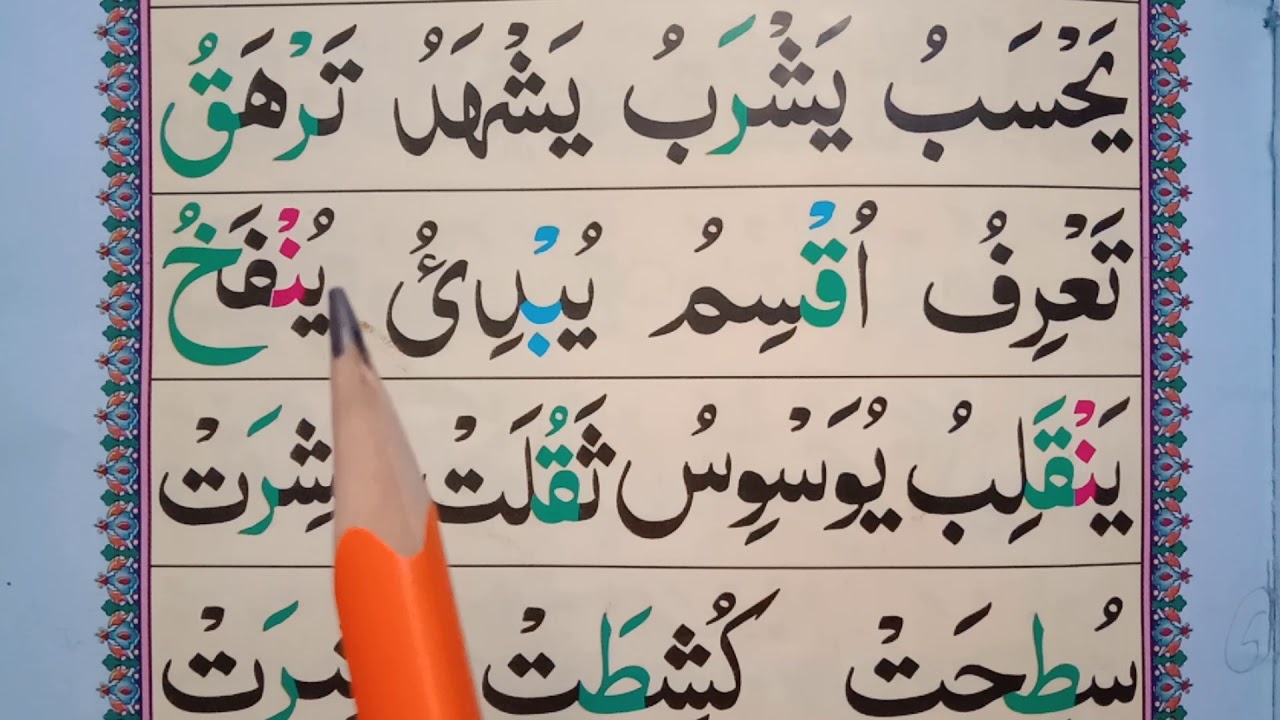 يَحْسَبُ يَشْرَبُ يَشْهَدُ تَرْهَقُ
تَعْرِفُ اُقْسِمُ يُبْدِئُ يُنْفَخُ
يَنْقَلِبُ يُوَسْوِسُ ثَقُلَتْ
سُطِحَتْ كُشِطَتْ